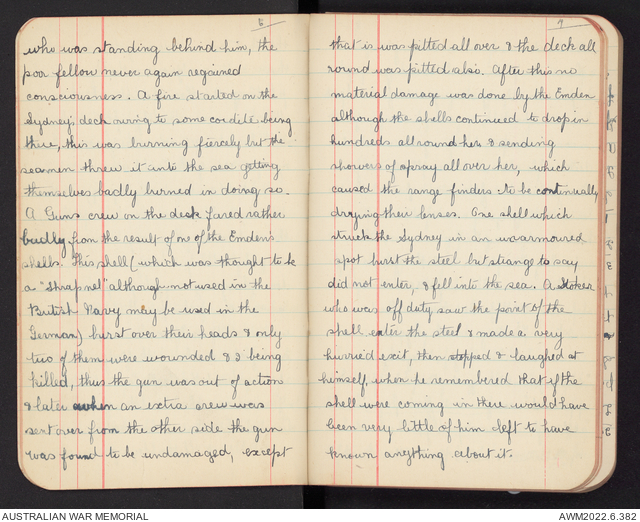 6
who was standing behind him, the
poor fellow never again regained
consciousness. A fire started on the
Sydney's deck owing to some cordite being
there, this was burning fiercely but the
seamen threw it into the sea getting
themselves badly burned in doing so.
A Guns crew on the deck fared rather
badly from the result of one of the Emden's
shells. This shell (which was thought to be
a "Shrapnel" although not used in the
British Navy may be used in the
German) burst over their heads & only
two of them were wounded & 2 being
killed, thus the gun was out of action
& later when an extra crew was
sent over from the other side the gun
was found to be undamaged, except
7
that is was pitted all over & the deck all
round was pitted also. After this no
material damage was done by the Emden
although the shells continued to drop in
hundreds all round her & sending
showers of spray all over her, which
caused the range finders to be continually
drying their lenses. One shell which
struck the Sydney in an unarmoured
spot burst the steel but strange to say
did not enter, & fell into the sea. A Stoker
who was off duty saw the point of the
shell enter the steel & made a very
hurried exit, then stopped & laughed at
himself, when he remembered that if the
shell were coming in there would have
been very little of him left to have
known anything about it.
AUSTRALIAN WAR MEMORIAL
AWM2022.6.382